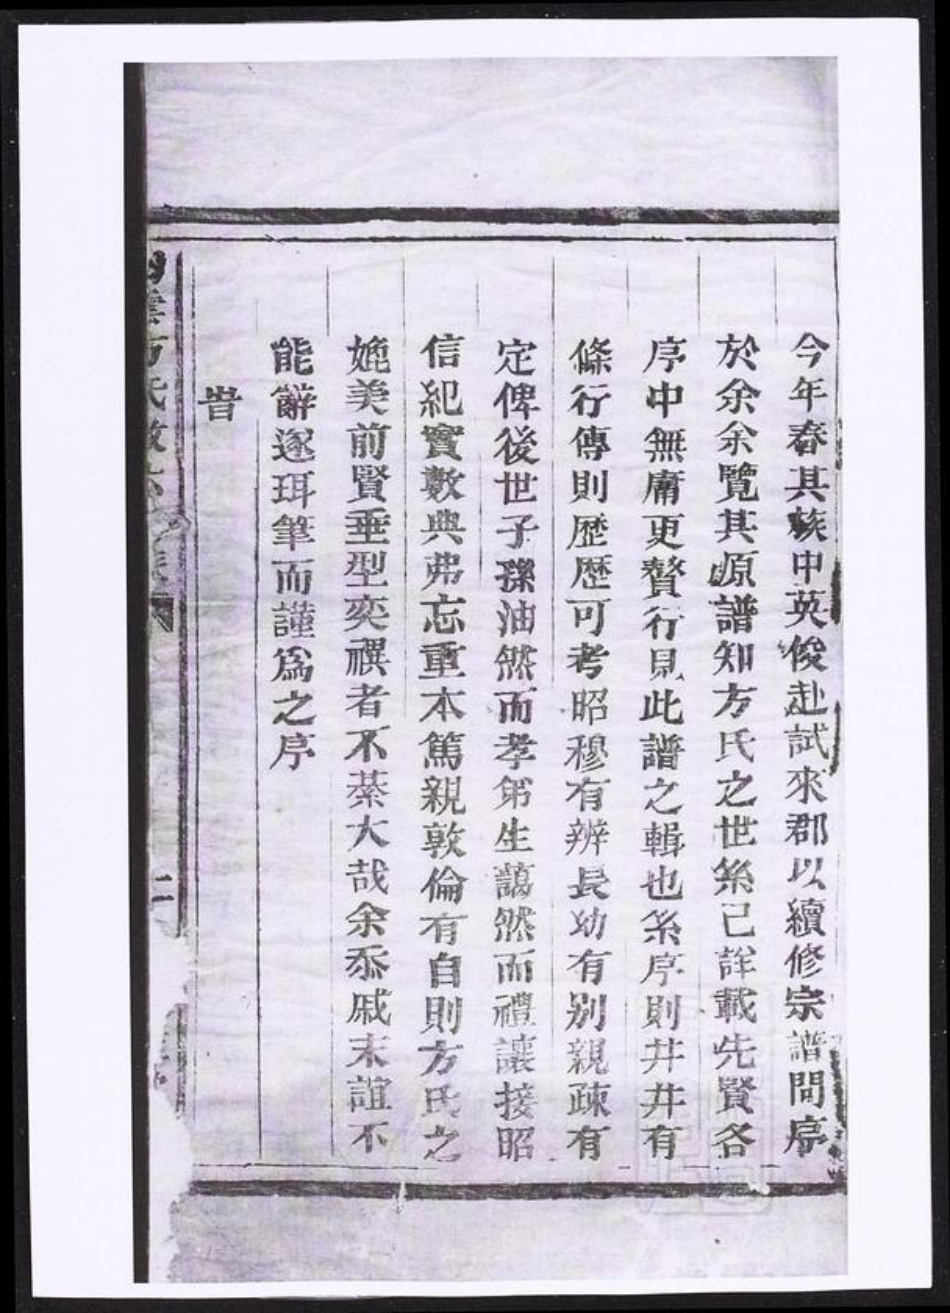 今年春其族中英俊赴試來郡以續修宗譜問序
於余余覽其原譜知方氏之世系已詳載先賢各
序中無庸更贅行見此譜之輯也系序則井井有
條行傳則歷歷可考昭穆有辨長幼有別親疎有
定俾後世子孫油然而孝弟生藹然而禮讓接昭
信紀實數典弗忘重本篤親敦倫有自則方氏之
媲美前賢垂型奕禩者不綦大哉余忝戚末誼不
能辭遂珥筆而謹為之序
旹
方氏
二